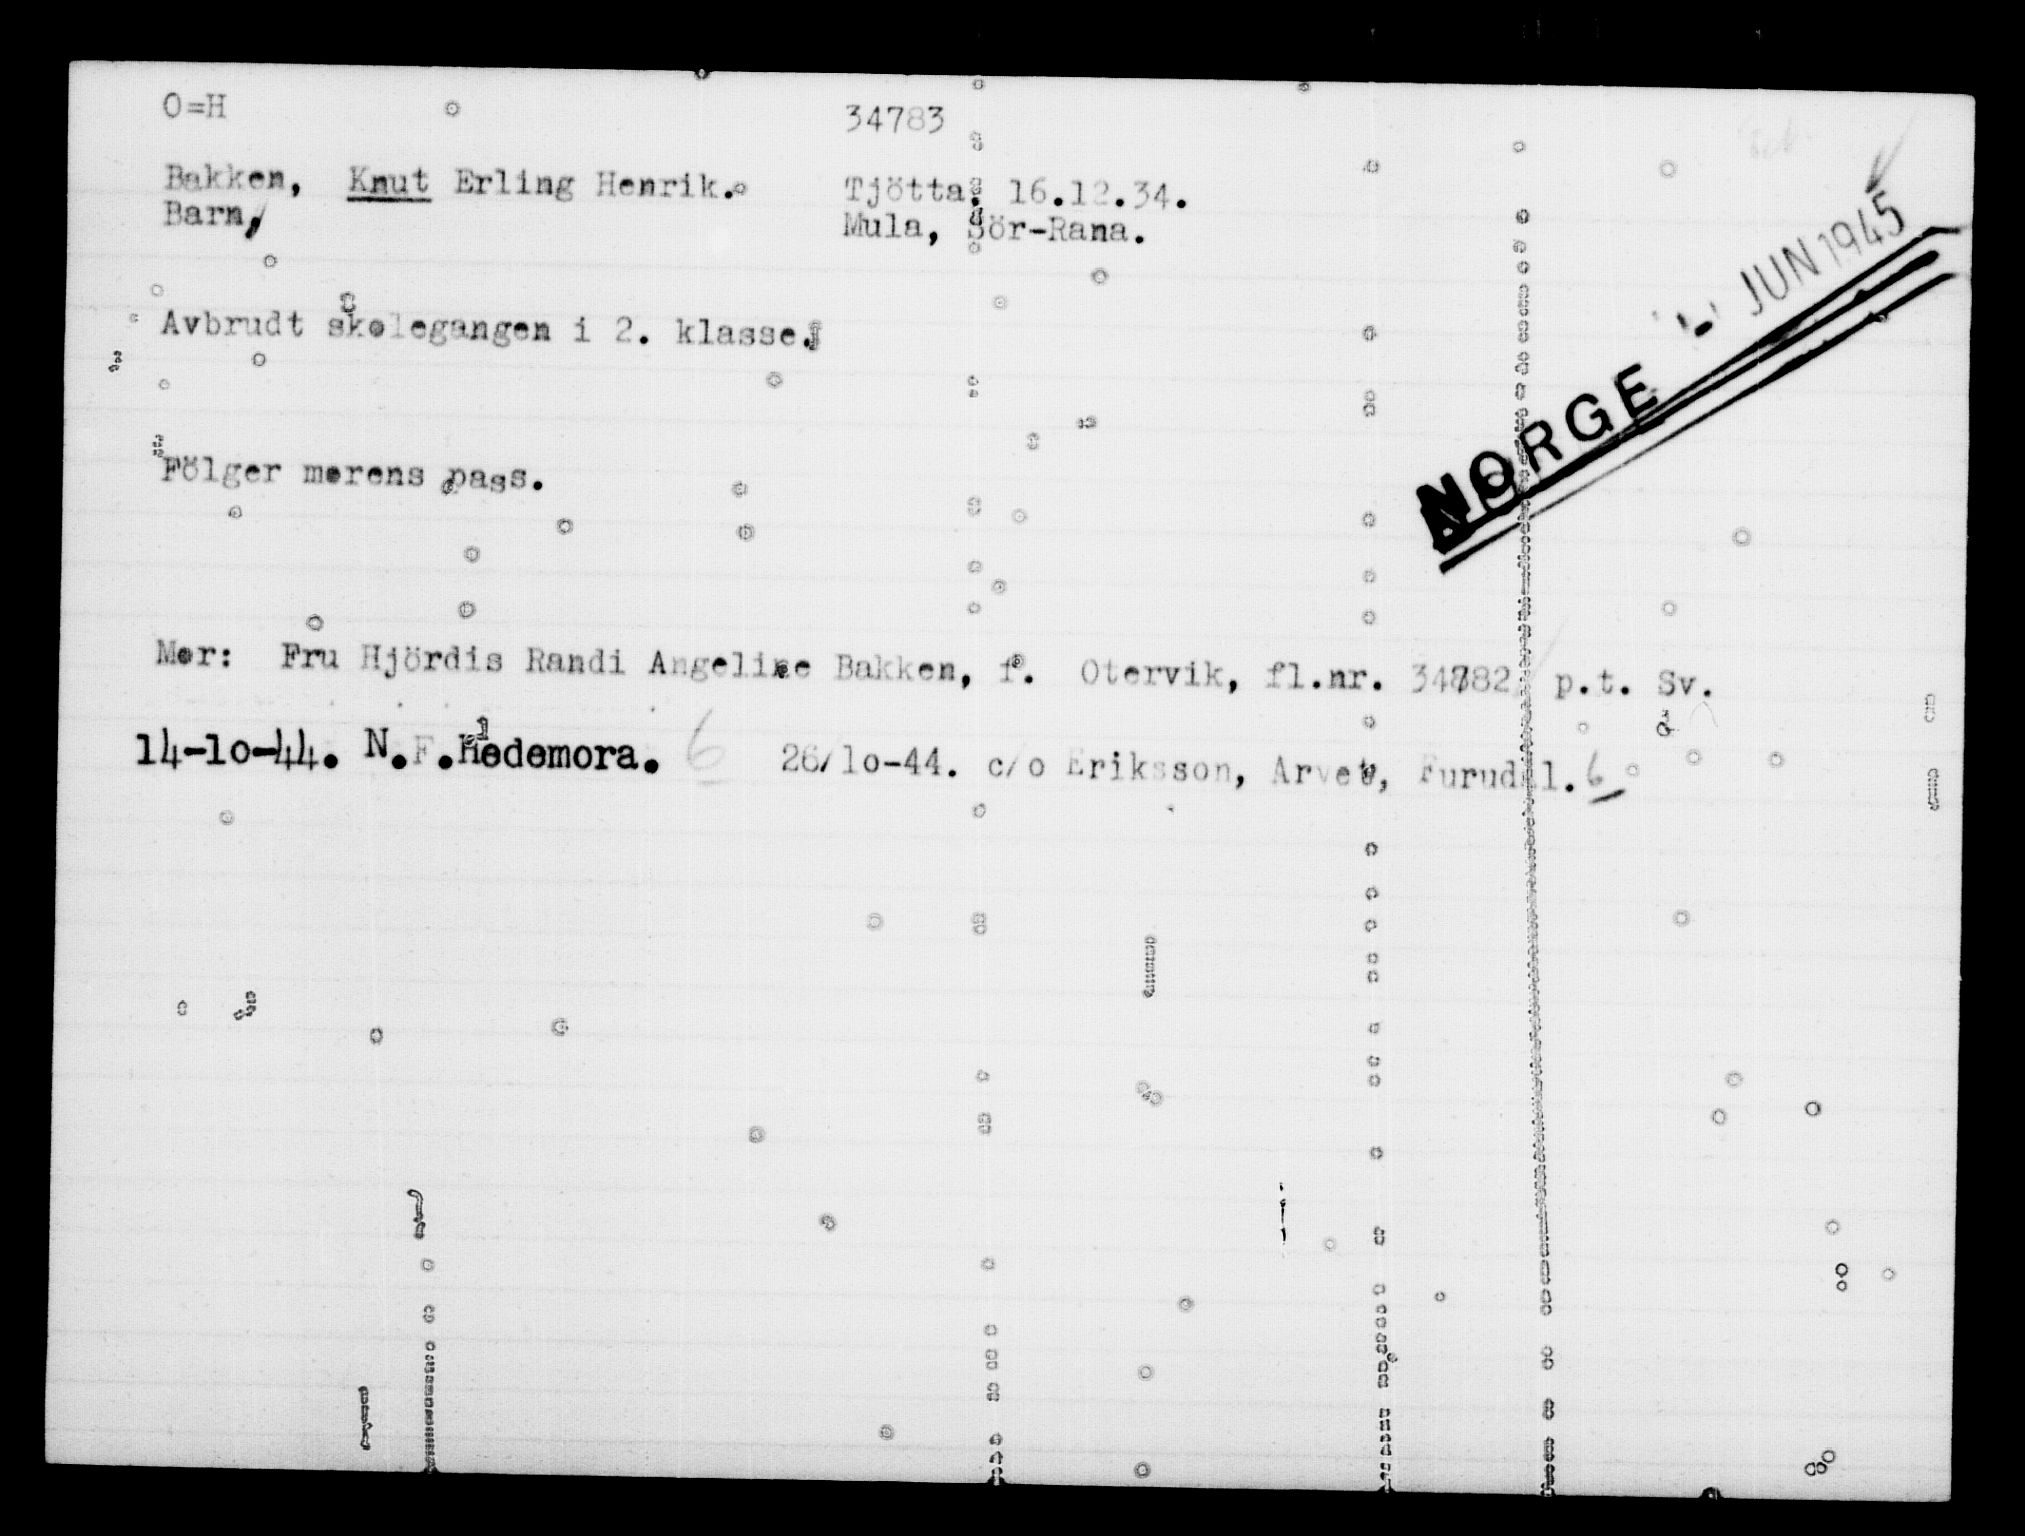 O=H 34783
Bakken, Knut Erling Henrik. Tjötta, 16.12.34.
Barn, Mula, Sör-Rana.
JUN 1945
Avbrudt skolegangen i 2. klasse.
NORGE
Fölger morens pass.
Mor: Fru Hjördis Randi Angeline Bakken, f. Otervik, fl.nr. 34782 p.t. Sv.
14-10-44. N.F.Hedemora. 6 26/10-44. c/o Eriksson, Arvet, Furudal. 6